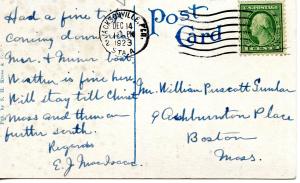 Had a fine trip
coming down
Mrs. & minor boat
Weather is fine here
Will stay till Christ
mass and then on
further south.
Regards
E. J. MacIsaac
Post
Card
JACKSONVILLE, FLA.
DEC 14
PM
1923
STA. A
Mr. William Prescott
9 Ashburnton Place
Boston
Mass.